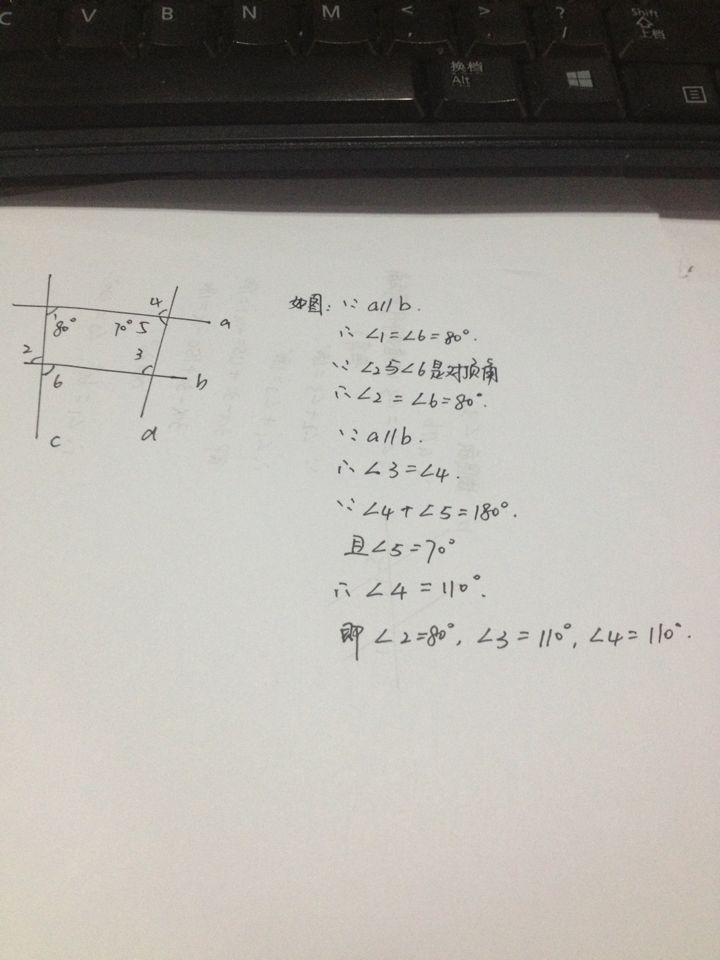 C V B N M < , > . ? / Shift 上档
换档 Alt
4
1 80° 70° 5 a
2 3
6 b
c d
如图: ∵ a∥b.
∴ ∠1=∠6=80°.
∵ ∠2与∠6是对顶角
∴ ∠2=∠6=80°.
∵ a∥b.
∴ ∠3=∠4.
∵ ∠4+∠5=180°.
且∠5=70°
∴ ∠4=110°.
即 ∠2=80°, ∠3=110°, ∠4=110°.